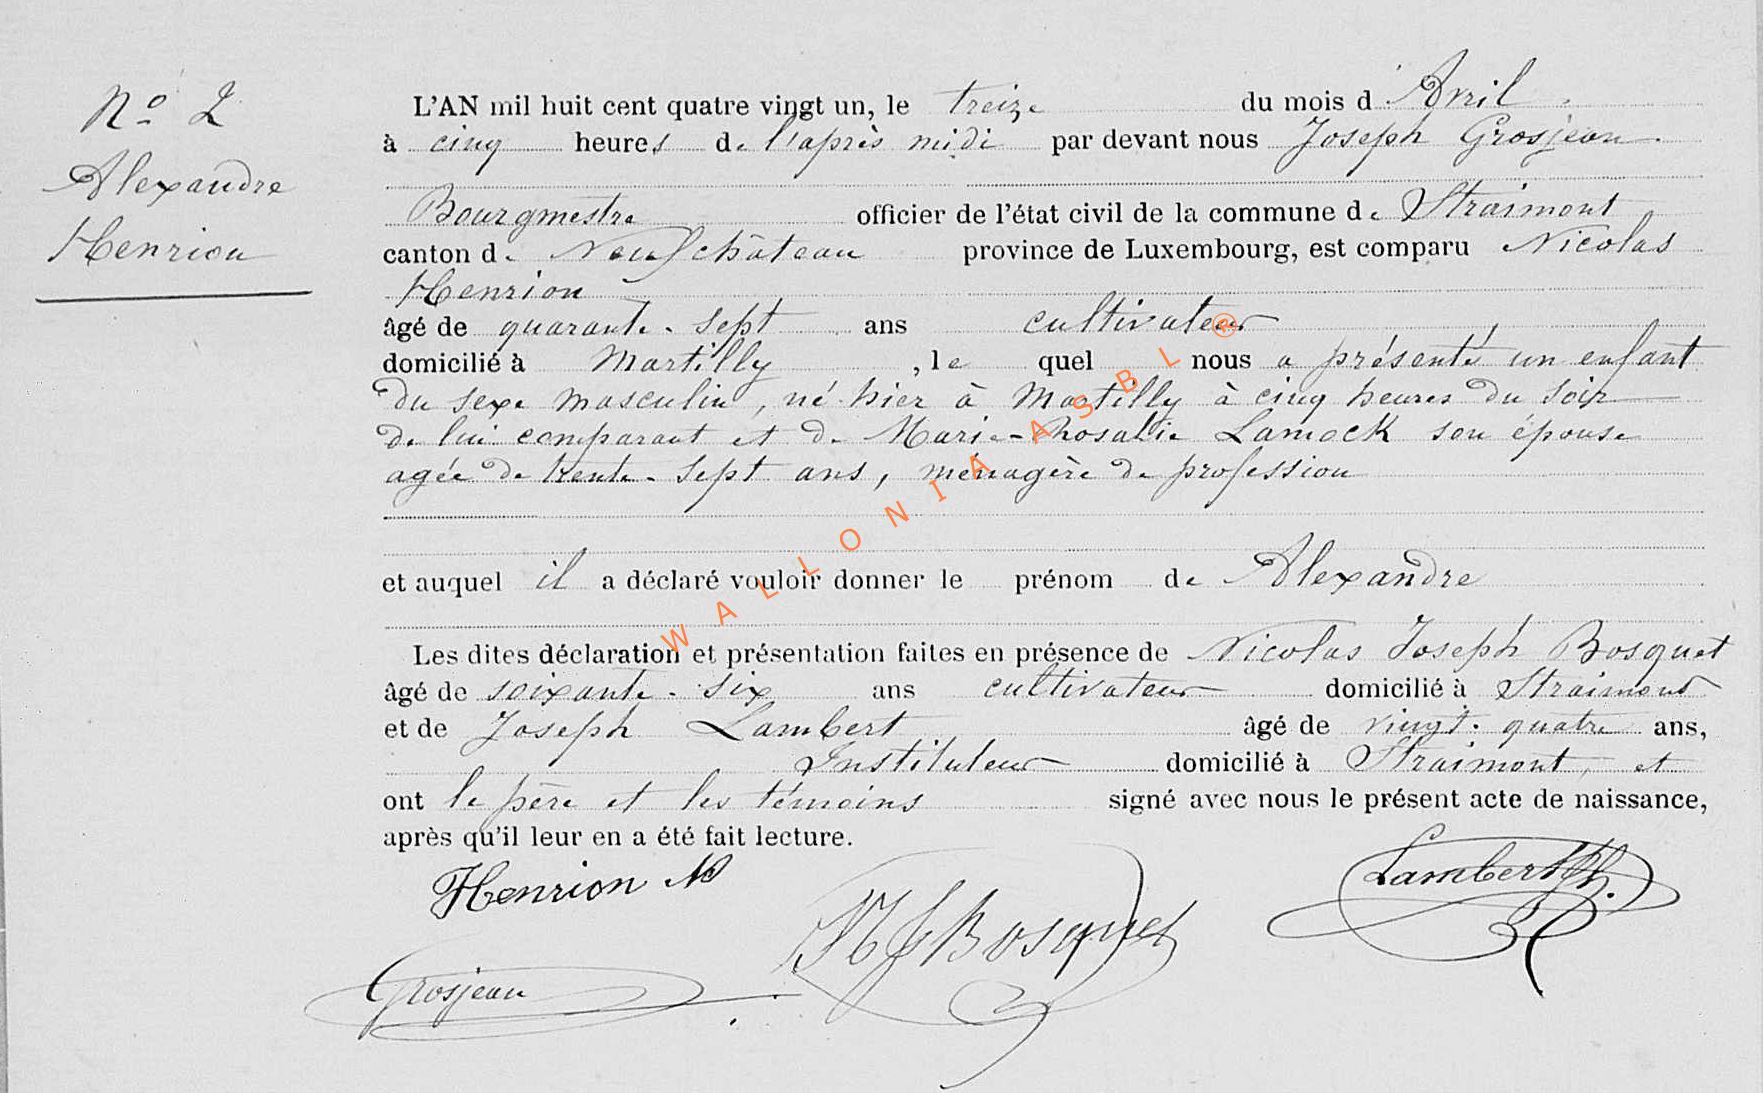 N° 2
Alexandre
Henrion
L'AN mil huit cent quatre vingt un, le treize du mois d'Avril
à cinq heures de l'après midi par devant nous Joseph Grosjean
Bourgmestre officier de l'état civil de la commune de Straimont
canton de Neufchâteau province de Luxembourg, est comparu Nicolas
Henrion
âgé de quarante-sept ans cultivateur
domicilié à Martilly, lequel nous a présenté un enfant
du sexe masculin, né hier à Martilly à cinq heures du soir
de lui comparant et de Marie-Rosalie Lamock son épouse
agée de trente-sept ans, ménagère de profession
et auquel il a déclaré vouloir donner le prénom de Alexandre
Les dites déclaration et présentation faites en présence de Nicolas Joseph Bosquet
âgé de soixante-six ans cultivateur domicilié à Straimont
et de Joseph Lambert âgé de vingt-quatre ans,
Instituteur domicilié à Straimont, et
ont le père et les témoins signé avec nous le présent acte de naissance,
après qu'il leur en a été fait lecture.
Henrion N
Lambert
NJBosquet
Grosjean
WALLONIA ASBL ®